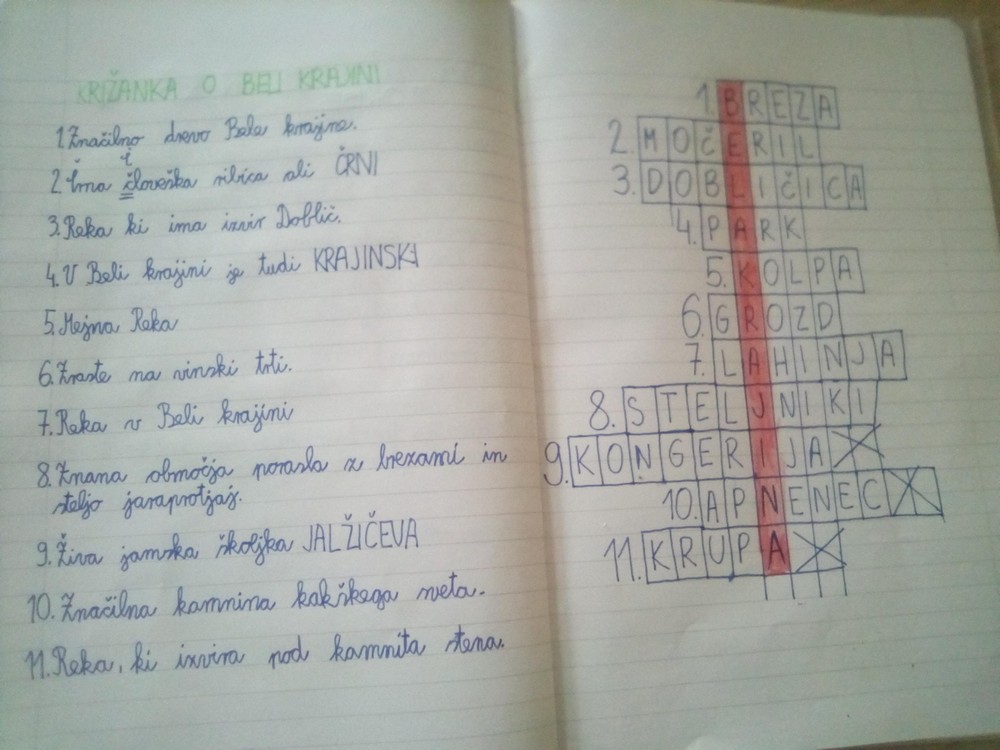 KRIŽANKA O BELI KRAJINI
1. Značilno drevo Bele krajine.
2. Črna človeška ribica ali ČRNI
3. Reka ki ima izvir Doblič.
4. V Beli krajini je tudi KRAJINSKI
5. Mejna Reka
6. Zraste na vinski trti.
7. Reka v Beli krajini
8. Znana območja porasla z brezami in
steljo
9. Živa jamska školjka JALŽIČEVA
10. Značilna kamnina kakškega sveta.
11. Reka, ki izvira pod kamnita stena.
1. BREZA
2. MOČERIL
3. DOBLIČICA
4. PARK
5. KOLPA
6. GROZD
7. LAHINJA
8. STELJNIKI
9. KONGERIJA
10. APNENEC
11. KRUPA